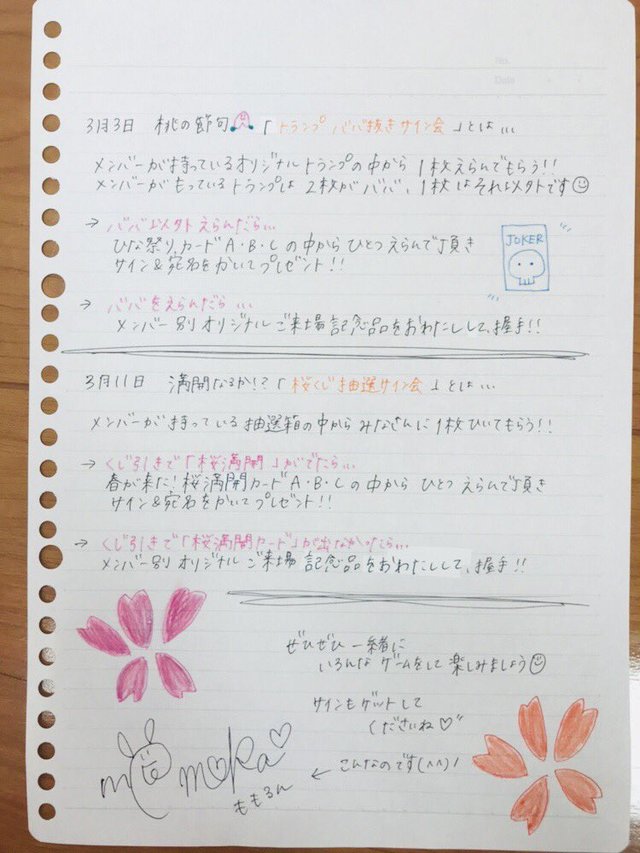 No.
Date
3月3日 桃の節句 「トランプ ババ抜きサイン会」とは…
メンバーが持っているオリジナルトランプの中から 1枚えらんでもらう!!
メンバーがもっているトランプは 2枚がババ、1枚はそれ以外です
→ ババ以外えらんだら…
ひな祭りカードA・B・Cの中からひとつえらんで頂き
サイン&宛名をかいてプレゼント!!
JOKER
→ ババをえらんだら…
メンバー別オリジナルご来場記念品をおわたしして、握手!!
3月11日 満開なるか!?「桜くじ抽選サイン会」とは…
メンバーが持っている抽選箱の中からみなさんに1枚ひいてもらう!!
→ くじ引きで「桜満開」がでたら…
春が来た!桜満開カードA・B・Cの中からひとつえらんで頂き
サイン&宛名をかいてプレゼント!!
→ くじ引きで「桜満開カード」が出なかったら…
メンバー別オリジナルご来場記念品をおわたしして、握手!!
ぜひぜひ一緒に
いろんなゲームをして楽しみましょう
サインもゲットして
くださいね♡
momoka♡
ももろん
← こんなのです(^^)!